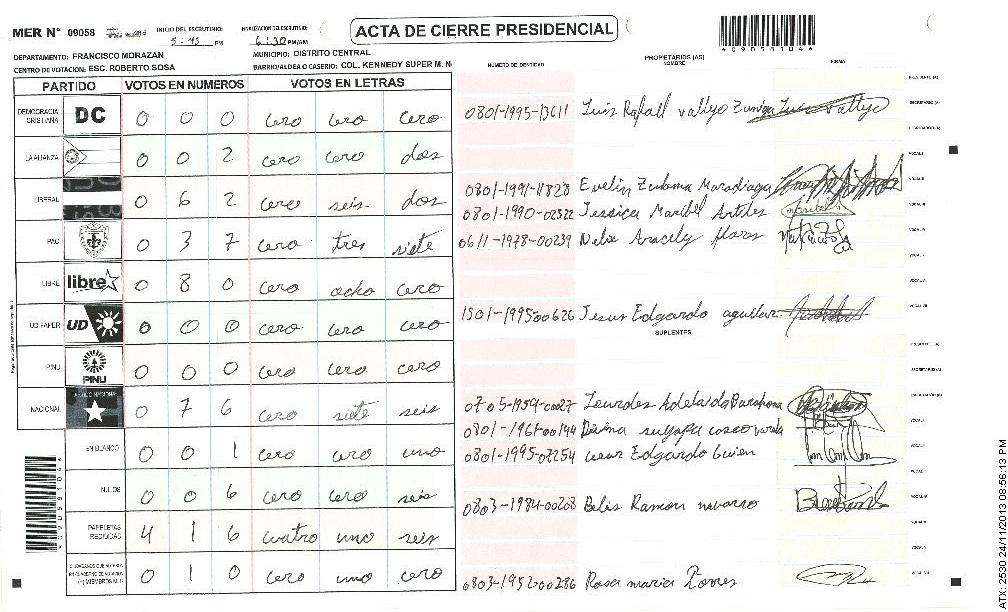 MER N° 09058 INICIO DEL ESCRUTINIO: 5:15 PM FINALIZACION DEL ESCRUTINIO: 6:30 PM/AM ACTA DE CIERRE PRESIDENCIAL
DEPARTAMENTO: FRANCISCO MORAZAN MUNICIPIO: DISTRITO CENTRAL
CENTRO DE VOTACION: ESC. ROBERTO SOSA BARRIO/ALDEA O CASERIO: COL. KENNEDY SUPER M. N
NUMERO DE IDENTIDAD PROPIETARIOS (AS) NOMBRE FIRMA
PARTIDO VOTOS EN NUMEROS VOTOS EN LETRAS
DEMOCRACIA CRISTIANA DC 0 0 0 cero cero cero
LA ALIANZA 0 0 2 cero cero dos
LIBERAL 0 6 2 cero seis dos
PAC 0 3 7 cero tres siete
LIBRE libre 0 8 0 cero ocho cero
UD FAPER UD 0 0 0 cero cero cero
PINU PINU 0 0 0 cero cero cero
NACIONAL 0 7 6 cero siete seis
EN BLANCO 0 0 1 cero cero uno
NULOS 0 0 6 cero cero seis
PAPELETAS RECIBIDAS 4 1 6 cuatro uno seis
0 1 0 cero uno cero
Luis Rafael vallejo Zuniga
0801-1991-11828 Evelin Zulema Maradiaga
0801-1990-02522 Jessica Maribel
0611-1978-00239 Aracely
1501-1995-00626 Jesus Edgardo aguilar
SUPLENTES
0705-1959-00027 Lourdes Adelaida Barahona
0801-1961-00144
0801-1995-07254 Edgardo
0803-1984-00268 Belis Ramon navarro
0803-1952-00286 Rosa maria Torres
ATX: 2530 24/11/2013 08:56:13 PM